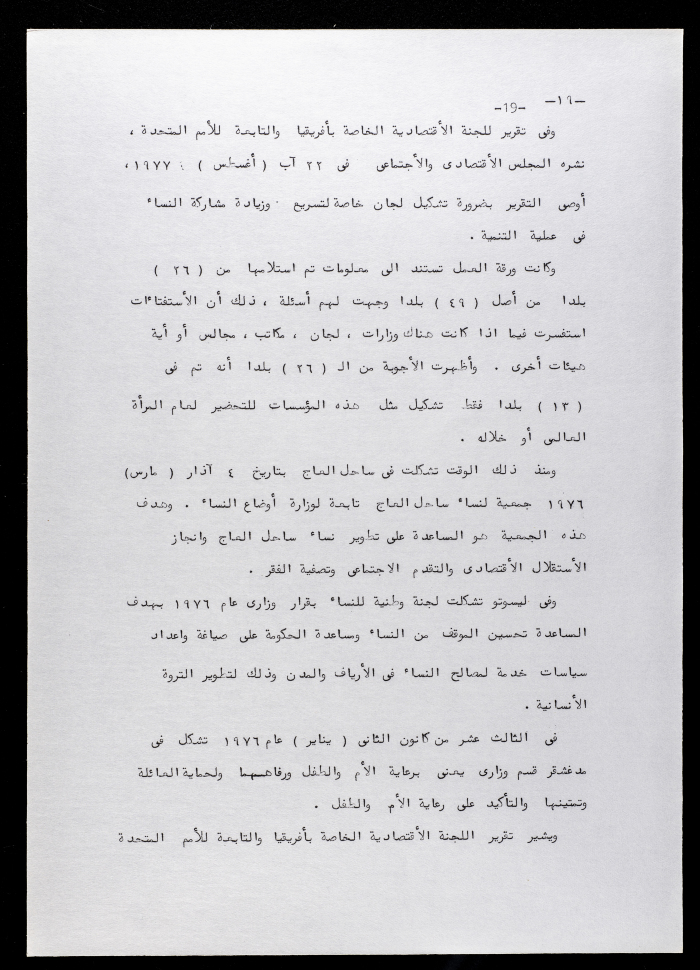 -١٩-
-19-
وفى تقرير للجنة الأقتصادية الخاصة بأفريقيا والتابعة للأمم المتحدة ،
نشره المجلس الأقتصادى والأجتماعى فى ٢٢ آب ( أغسطس ) ١٩٧٧ ،
أوصى التقرير بضرورة تشكيل لجان خاصة لتسريع وزيادة مشاركة النساء
فى عملية التنمية .
وكانت ورقة العمل تستند الى معلومات تم استلامها من ( ٢٦ )
بلدا من أصل ( ٤٩ ) بلدا وجهت لهم أسئلة ، ذلك أن الأستفتاءات
استفسرت فيما اذا كانت هناك وزارات ، لجان ، مكاتب ، مجالس أو أية
هيئات أخرى . وأظهرت الأجوبة من الـ ( ٢٦ ) بلدا أنه تم فى
( ١٣ ) بلدا فقط تشكيل مثل هذه المؤسسات للتحضير لعام المرأة
العالمى أو خلاله .
ومنذ ذلك الوقت تشكلت فى ساحل العاج بتاريخ ٤ آذار ( مارس)
١٩٧٦ جمعية لنساء ساحل العاج تابعة لوزارة أوضاع النساء . وهدف
هذه الجمعية هو المساعدة على تطوير نساء ساحل العاج وانجاز
الأستقلال الأقتصادى والتقدم الاجتماعى وتصفية الفقر .
وفى ليسوتو تشكلت لجنة وطنية للنساء بقرار وزارى عام ١٩٧٦ بهدف
المساعدة تحسين الموقف من النساء ومساعدة الحكومة على صياغة واعداد
سياسات خدمة لمصالح النساء فى الأرياف والمدن وذلك لتطوير الثروة
الأنسانية .
فى الثالث عشر من كانون الثانى ( يناير ) عام ١٩٧٦ تشكل فى
مدغشقر قسم وزارى يعنى برعاية الأم والطفل ورفاههما ولحماية العائلة
وتمتينها والتأكيد على رعاية الأم والطفل .
ويشير تقرير اللجنة الأقتصادية الخاصة بأفريقيا والتابعة للأمم المتحدة